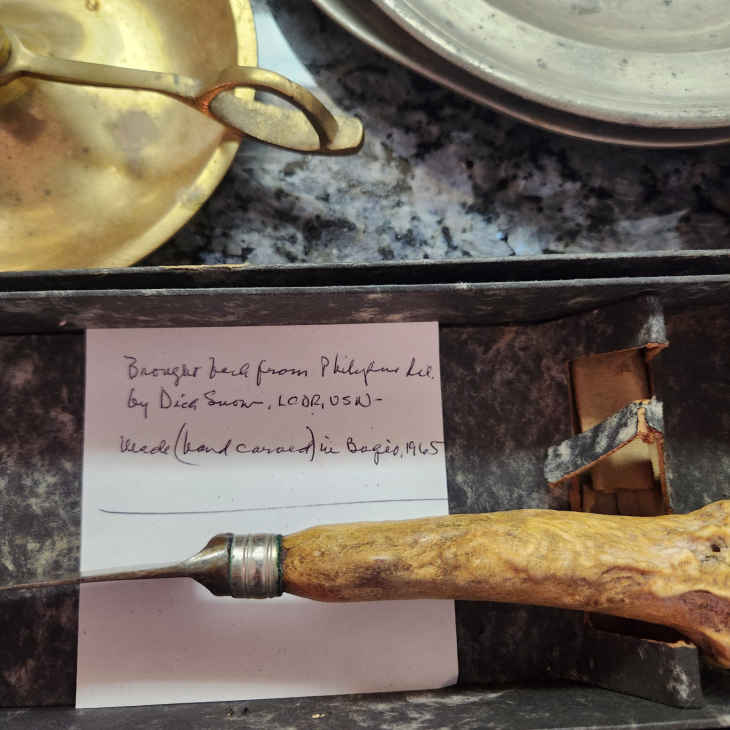 Brought back from Philippine Isl.
by Dick Snow, LCDR, USN-
Made (hand carved) in Bagio, 1965